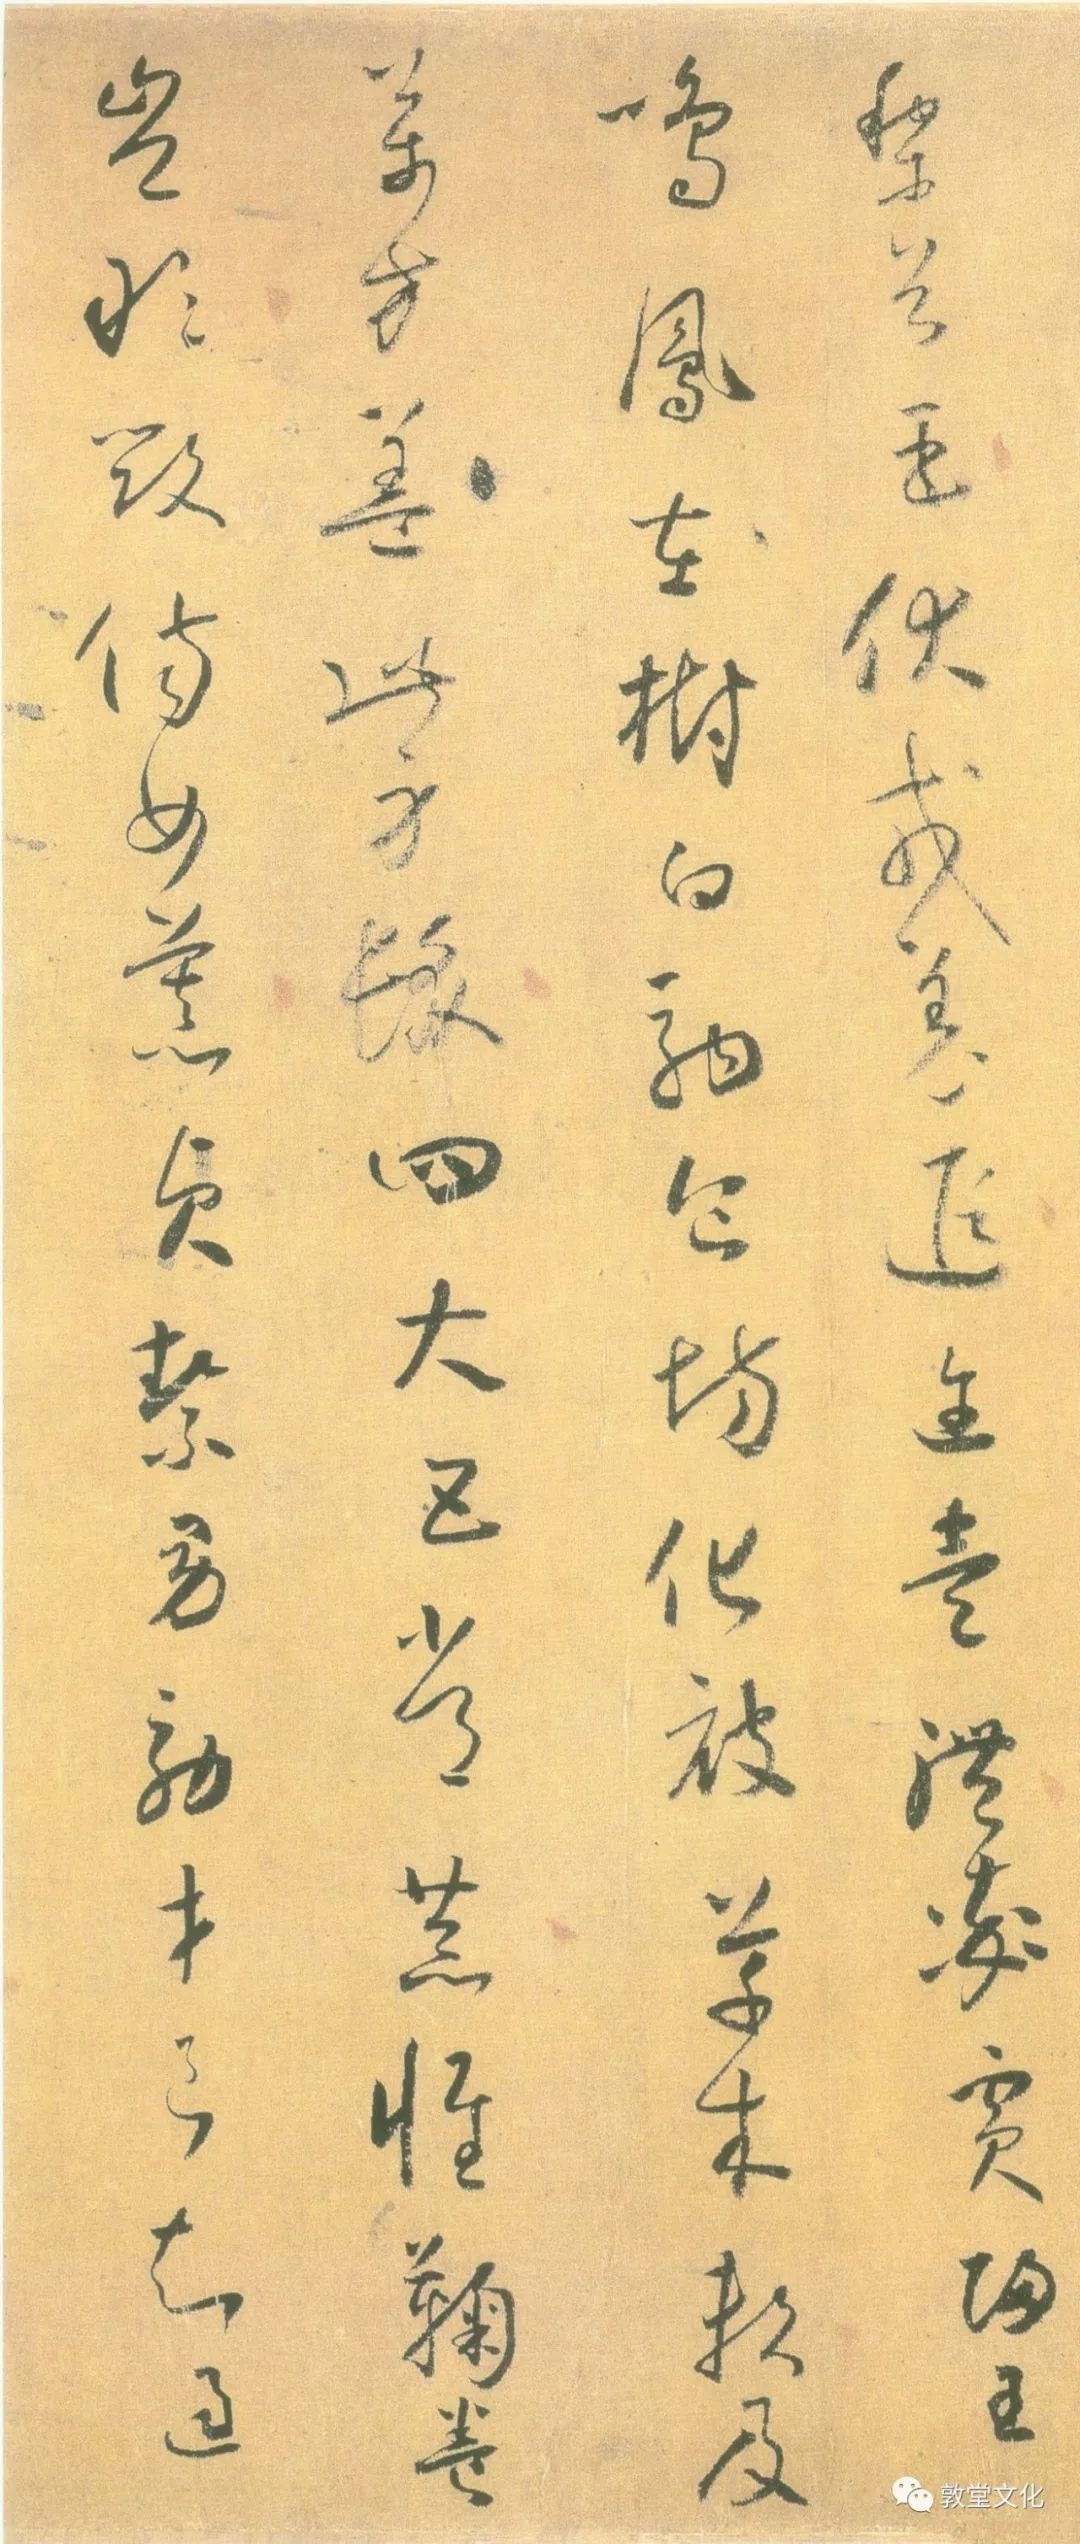 黎首臣伏戎羌遐邇壹體率賓歸王
鳴鳳在樹白駒食場化被草木賴及
萬方蓋此身髮四大五常恭惟鞠養
豈敢毀傷女慕貞絜男効才良知過
敦堂文化